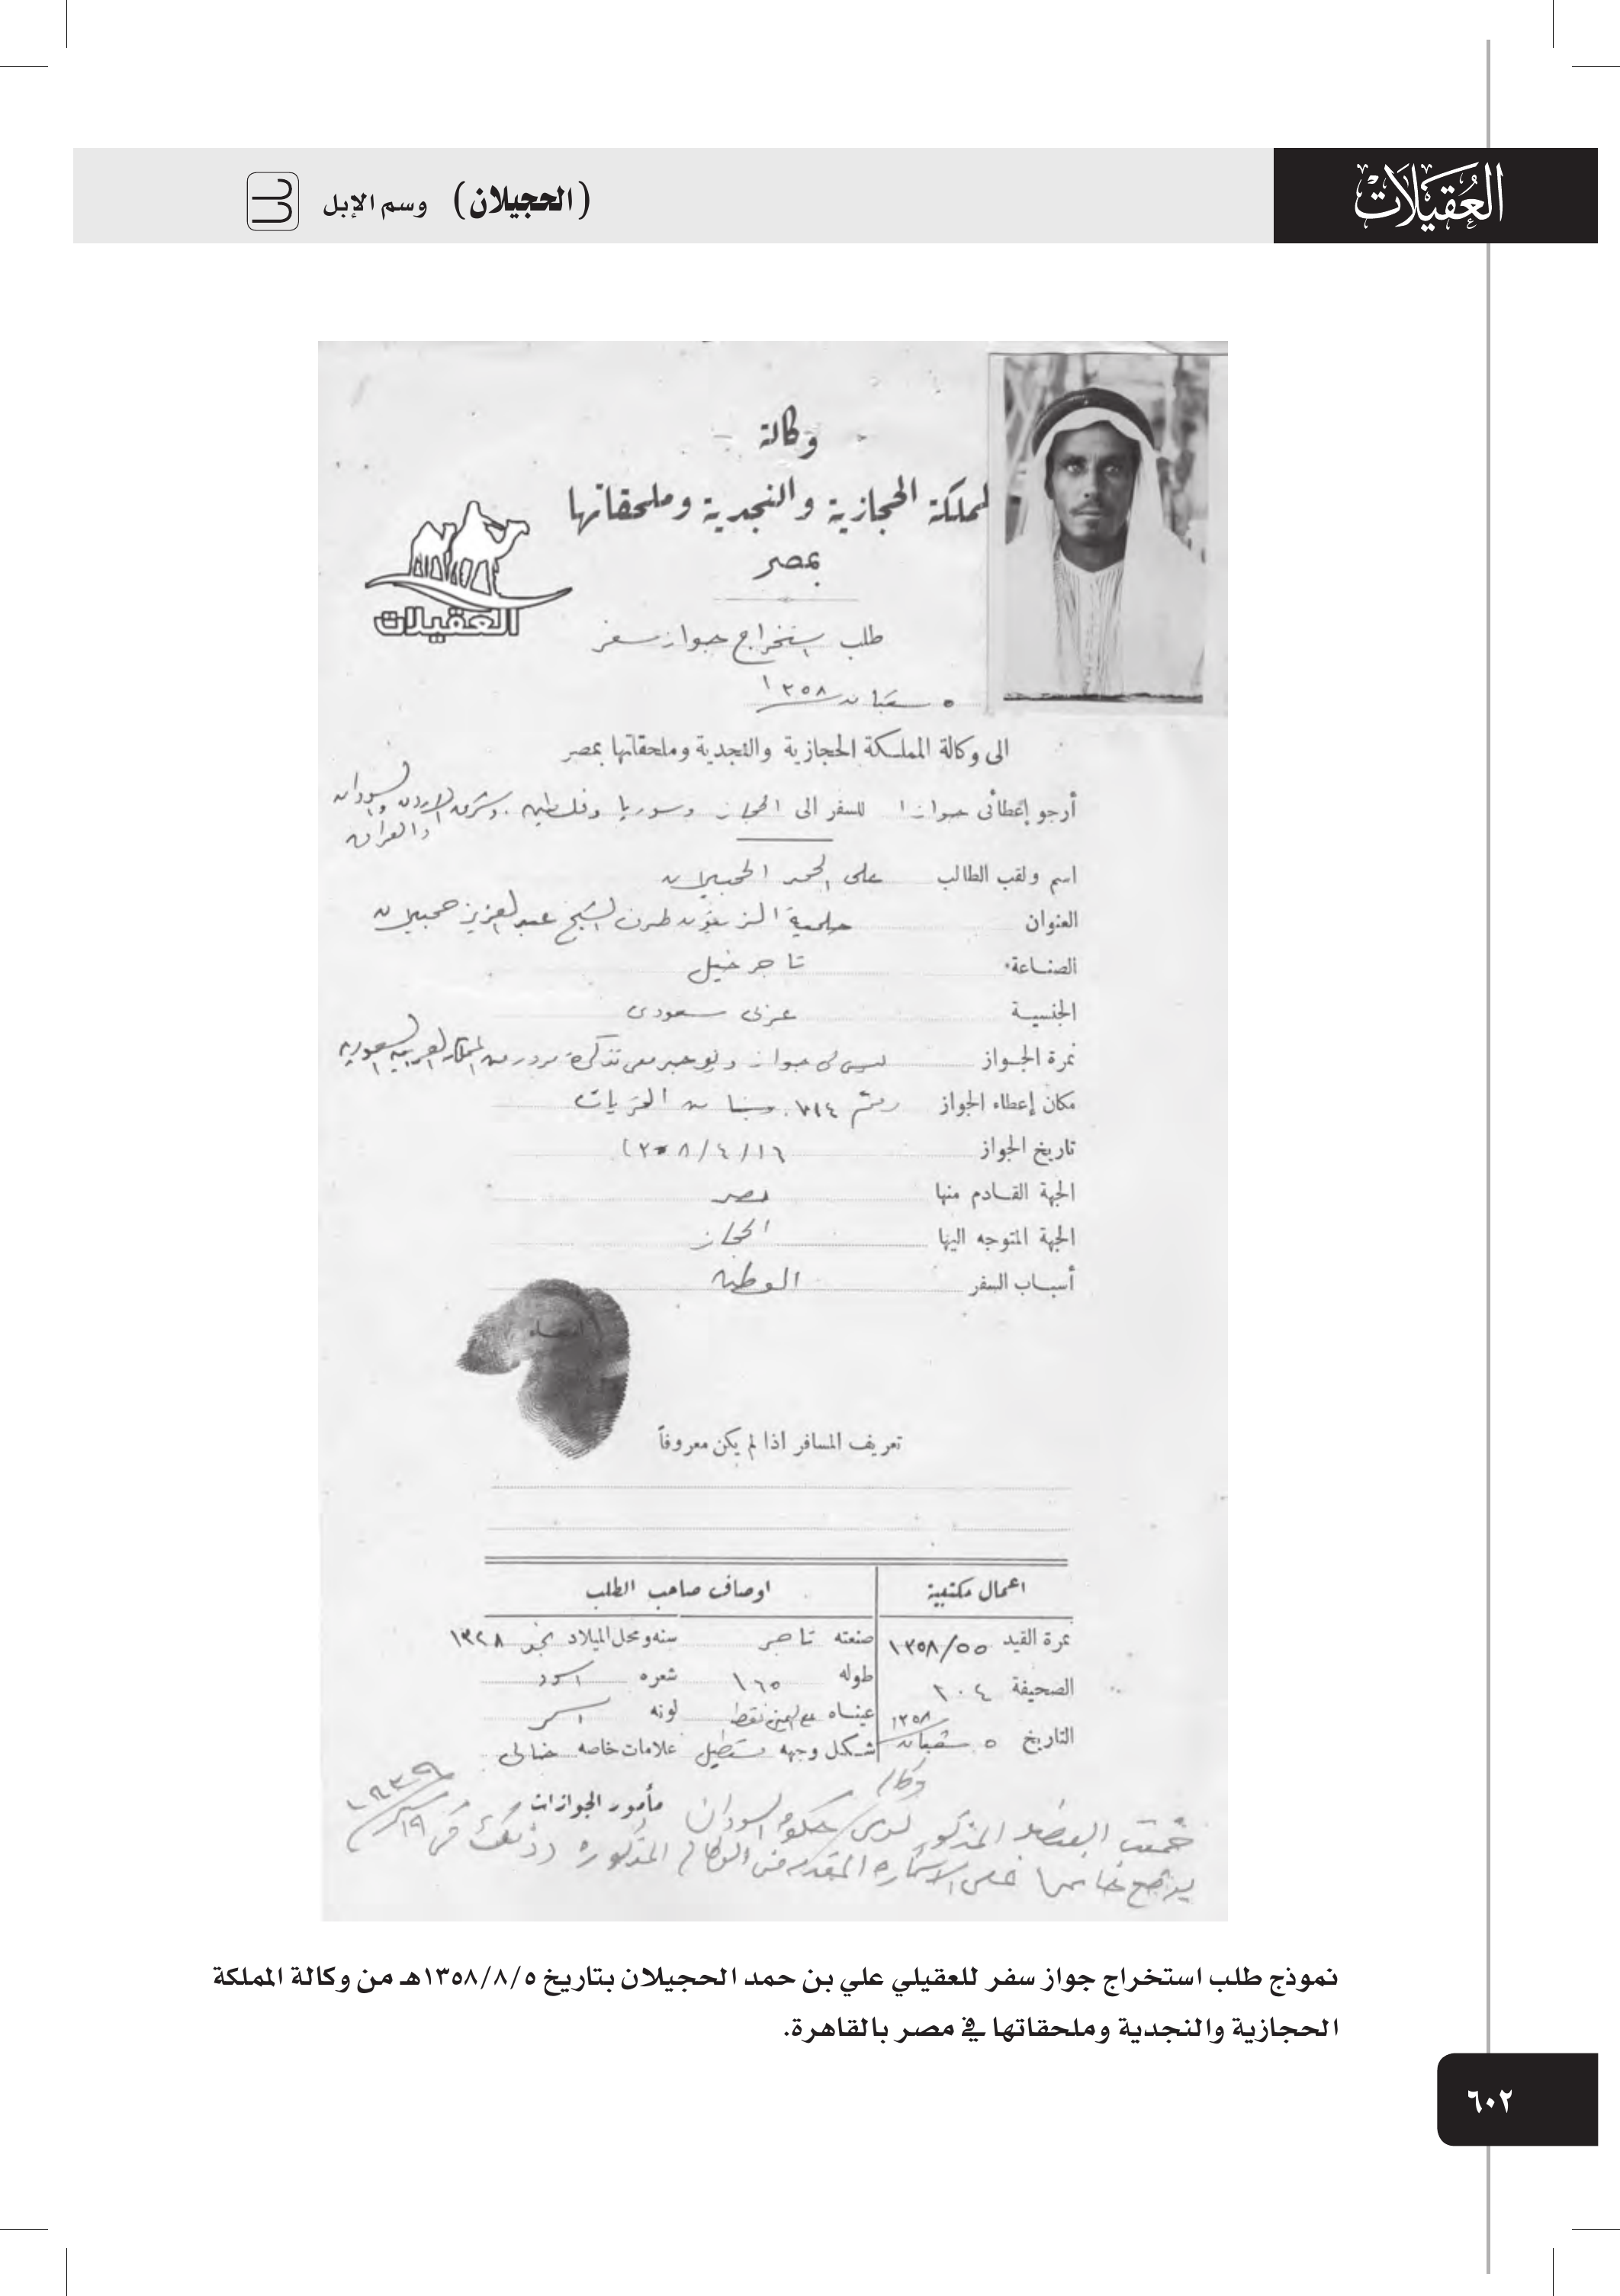 العُقيلات
(الحجيلان) وسم الإبل
وكالة
لمملكة الحجازية والنجدية وملحقاتها
بمصر
العقيلات
طلب استخراج جواز سفر
٥ شعبان ١٣٥٨
الى وكالة المملكة الحجازية والنجدية وملحقاتها بمصر
أرجو إعطائى جوازا للسفر الى الحجاز وسوريا وفلسطين وشرق الاردن والسودان
والعراق
اسم ولقب الطالب على الحمد الحجيلان
العنوان حلمية الزيتون طرف الشيخ عبد العزيز حجيلان
الصناعة تاجر خيل
الجنسية عربى سعودى
نمرة الجواز ليس لى جواز ويوجد معى تذكرة مرور من المملكة العربية السعودية
مكان إعطاء الجواز رقم القريات
تاريخ الجواز
الجهة القادم منها مصر
الجهة المتوجه اليها الحجاز
أسباب السفر الوطن
امضاء
تعريف المسافر اذا لم يكن معروفاً
اعمال مكتبية اوصاف صاحب الطلب
نمرة القيد ١٣٥٨/٥٥ صنعته تاجر سنه ومحل الميلاد نجد ١٣٢٨
الصحيفة ٢٠٤ طوله ١٦٥ شعره اسود
التاريخ ٥ شعبان ١٣٥٨ عيناه لونه اسمر
شكل وجهه مستطيل علامات خاصه خالى
مأمور الجوازات
المذكور لدى وكالة حكومة السودان
الاستمارة المقدمة من الوكالة المذكورة وذلك فى
نموذج طلب استخراج جواز سفر للعقيلي علي بن حمد الحجيلان بتاريخ ١٣٥٨/٨/٥هـ من وكالة المملكة
الحجازية والنجدية وملحقاتها في مصر بالقاهرة.
٦٠٢